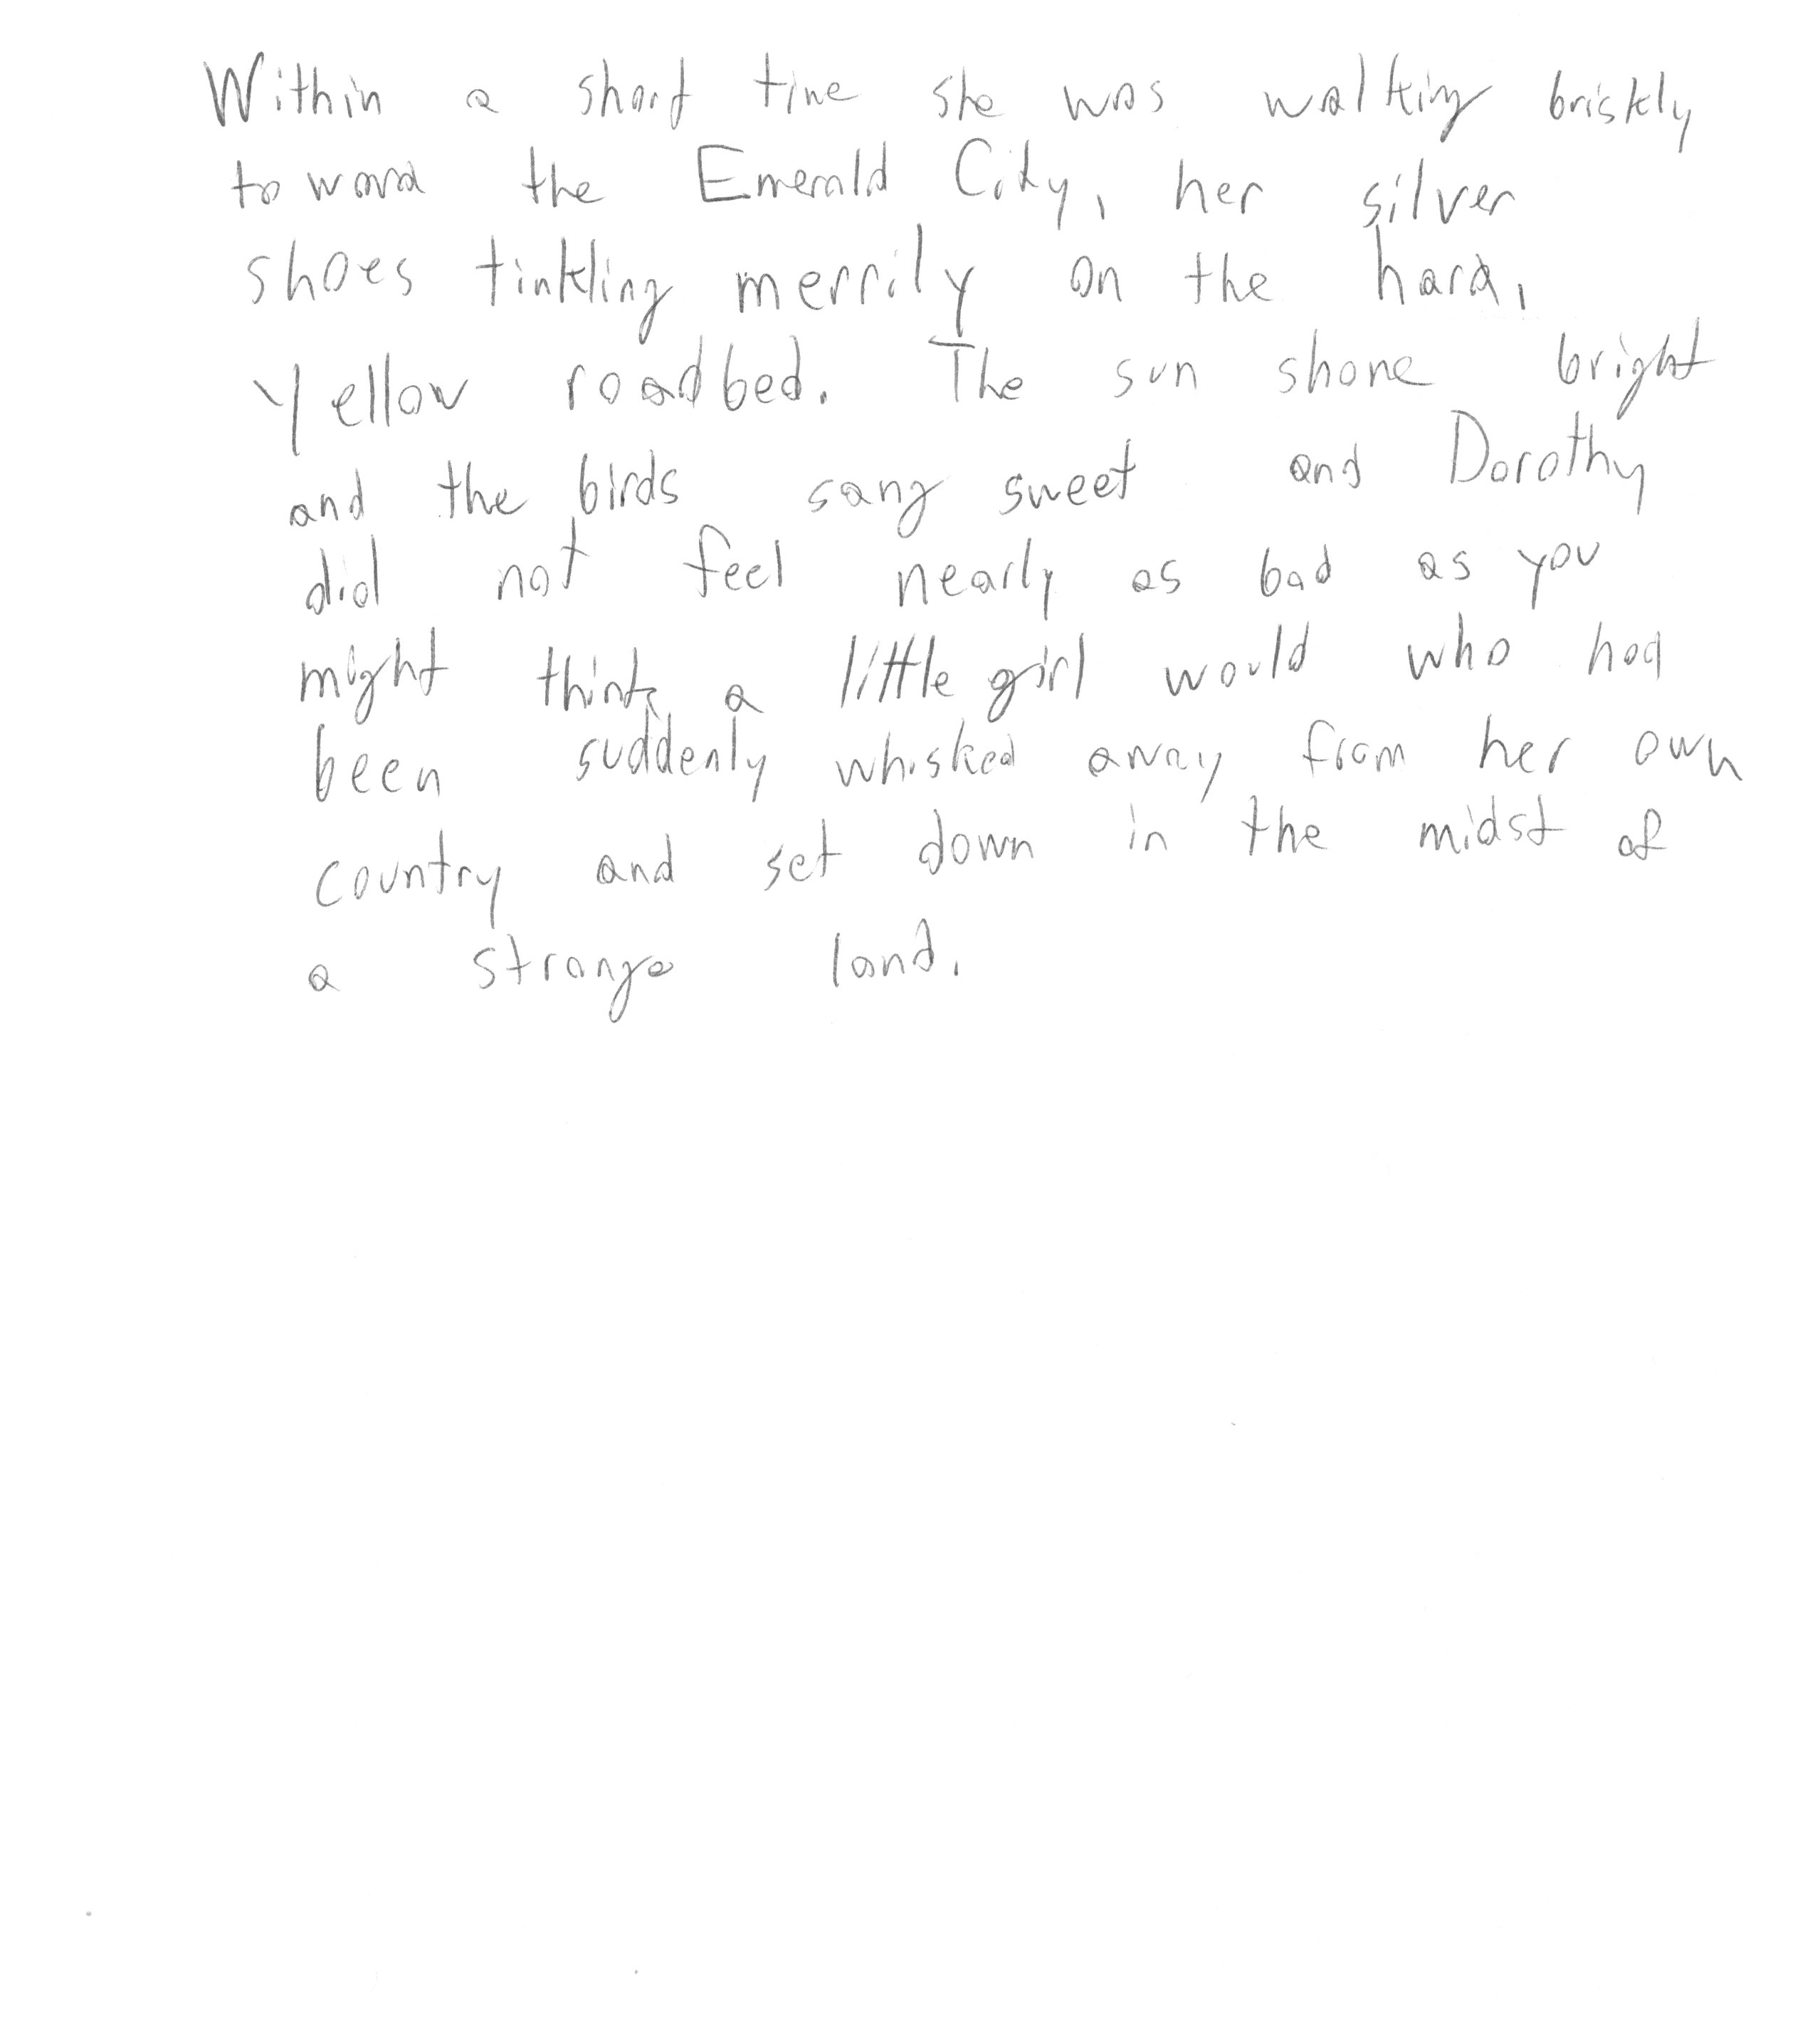 Within a short time she was walking briskly
toward the Emerald City, her silver
shoes tinkling merrily on the hard,
yellow roadbed. The sun shone bright
and the birds sang sweet and Dorothy
did not feel nearly as bad as you
might think a little girl would who had
been suddenly whisked away from her own
country and set down in the midst of
a strange land.